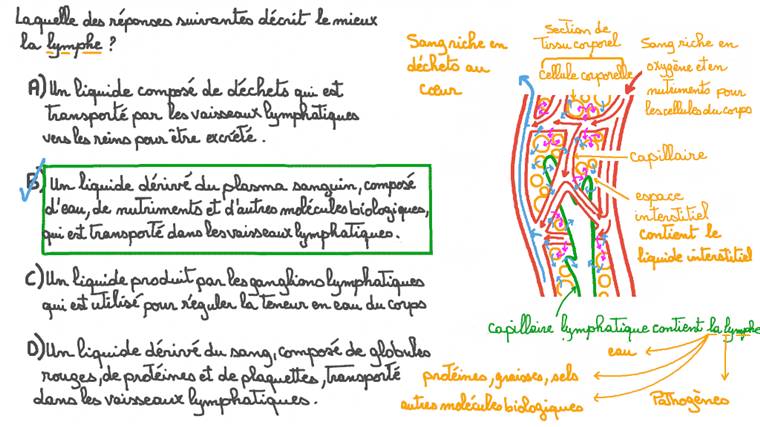 Laquelle des réponses suivantes décrit le mieux
la lymphe ?
A) Un liquide composé de déchets qui est
transporté par les vaisseaux lymphatiques
vers les reins pour être excrété.
B) Un liquide dérivé du plasma sanguin, composé
d'eau, de nutriments et d'autres molécules biologiques,
qui est transporté dans les vaisseaux lymphatiques.
C) Un liquide produit par les ganglions lymphatiques
qui est utilisé pour réguler la teneur en eau du corps
D) Un liquide dérivé du sang, composé de globules
rouges, de protéines et de plaquettes, transporté
dans les vaisseaux lymphatiques.
Sang riche en
déchets au
cœur
Section de
tissu corporel
cellule corporelle
Sang riche en
oxygène et en
nutriments pour
les cellules du corps
capillaire
espace
interstitiel
contient le
liquide interstitiel
capillaire lymphatique contient la lymphe
eau
protéines, graisses, sels
autres molécules biologiques
Pathogènes